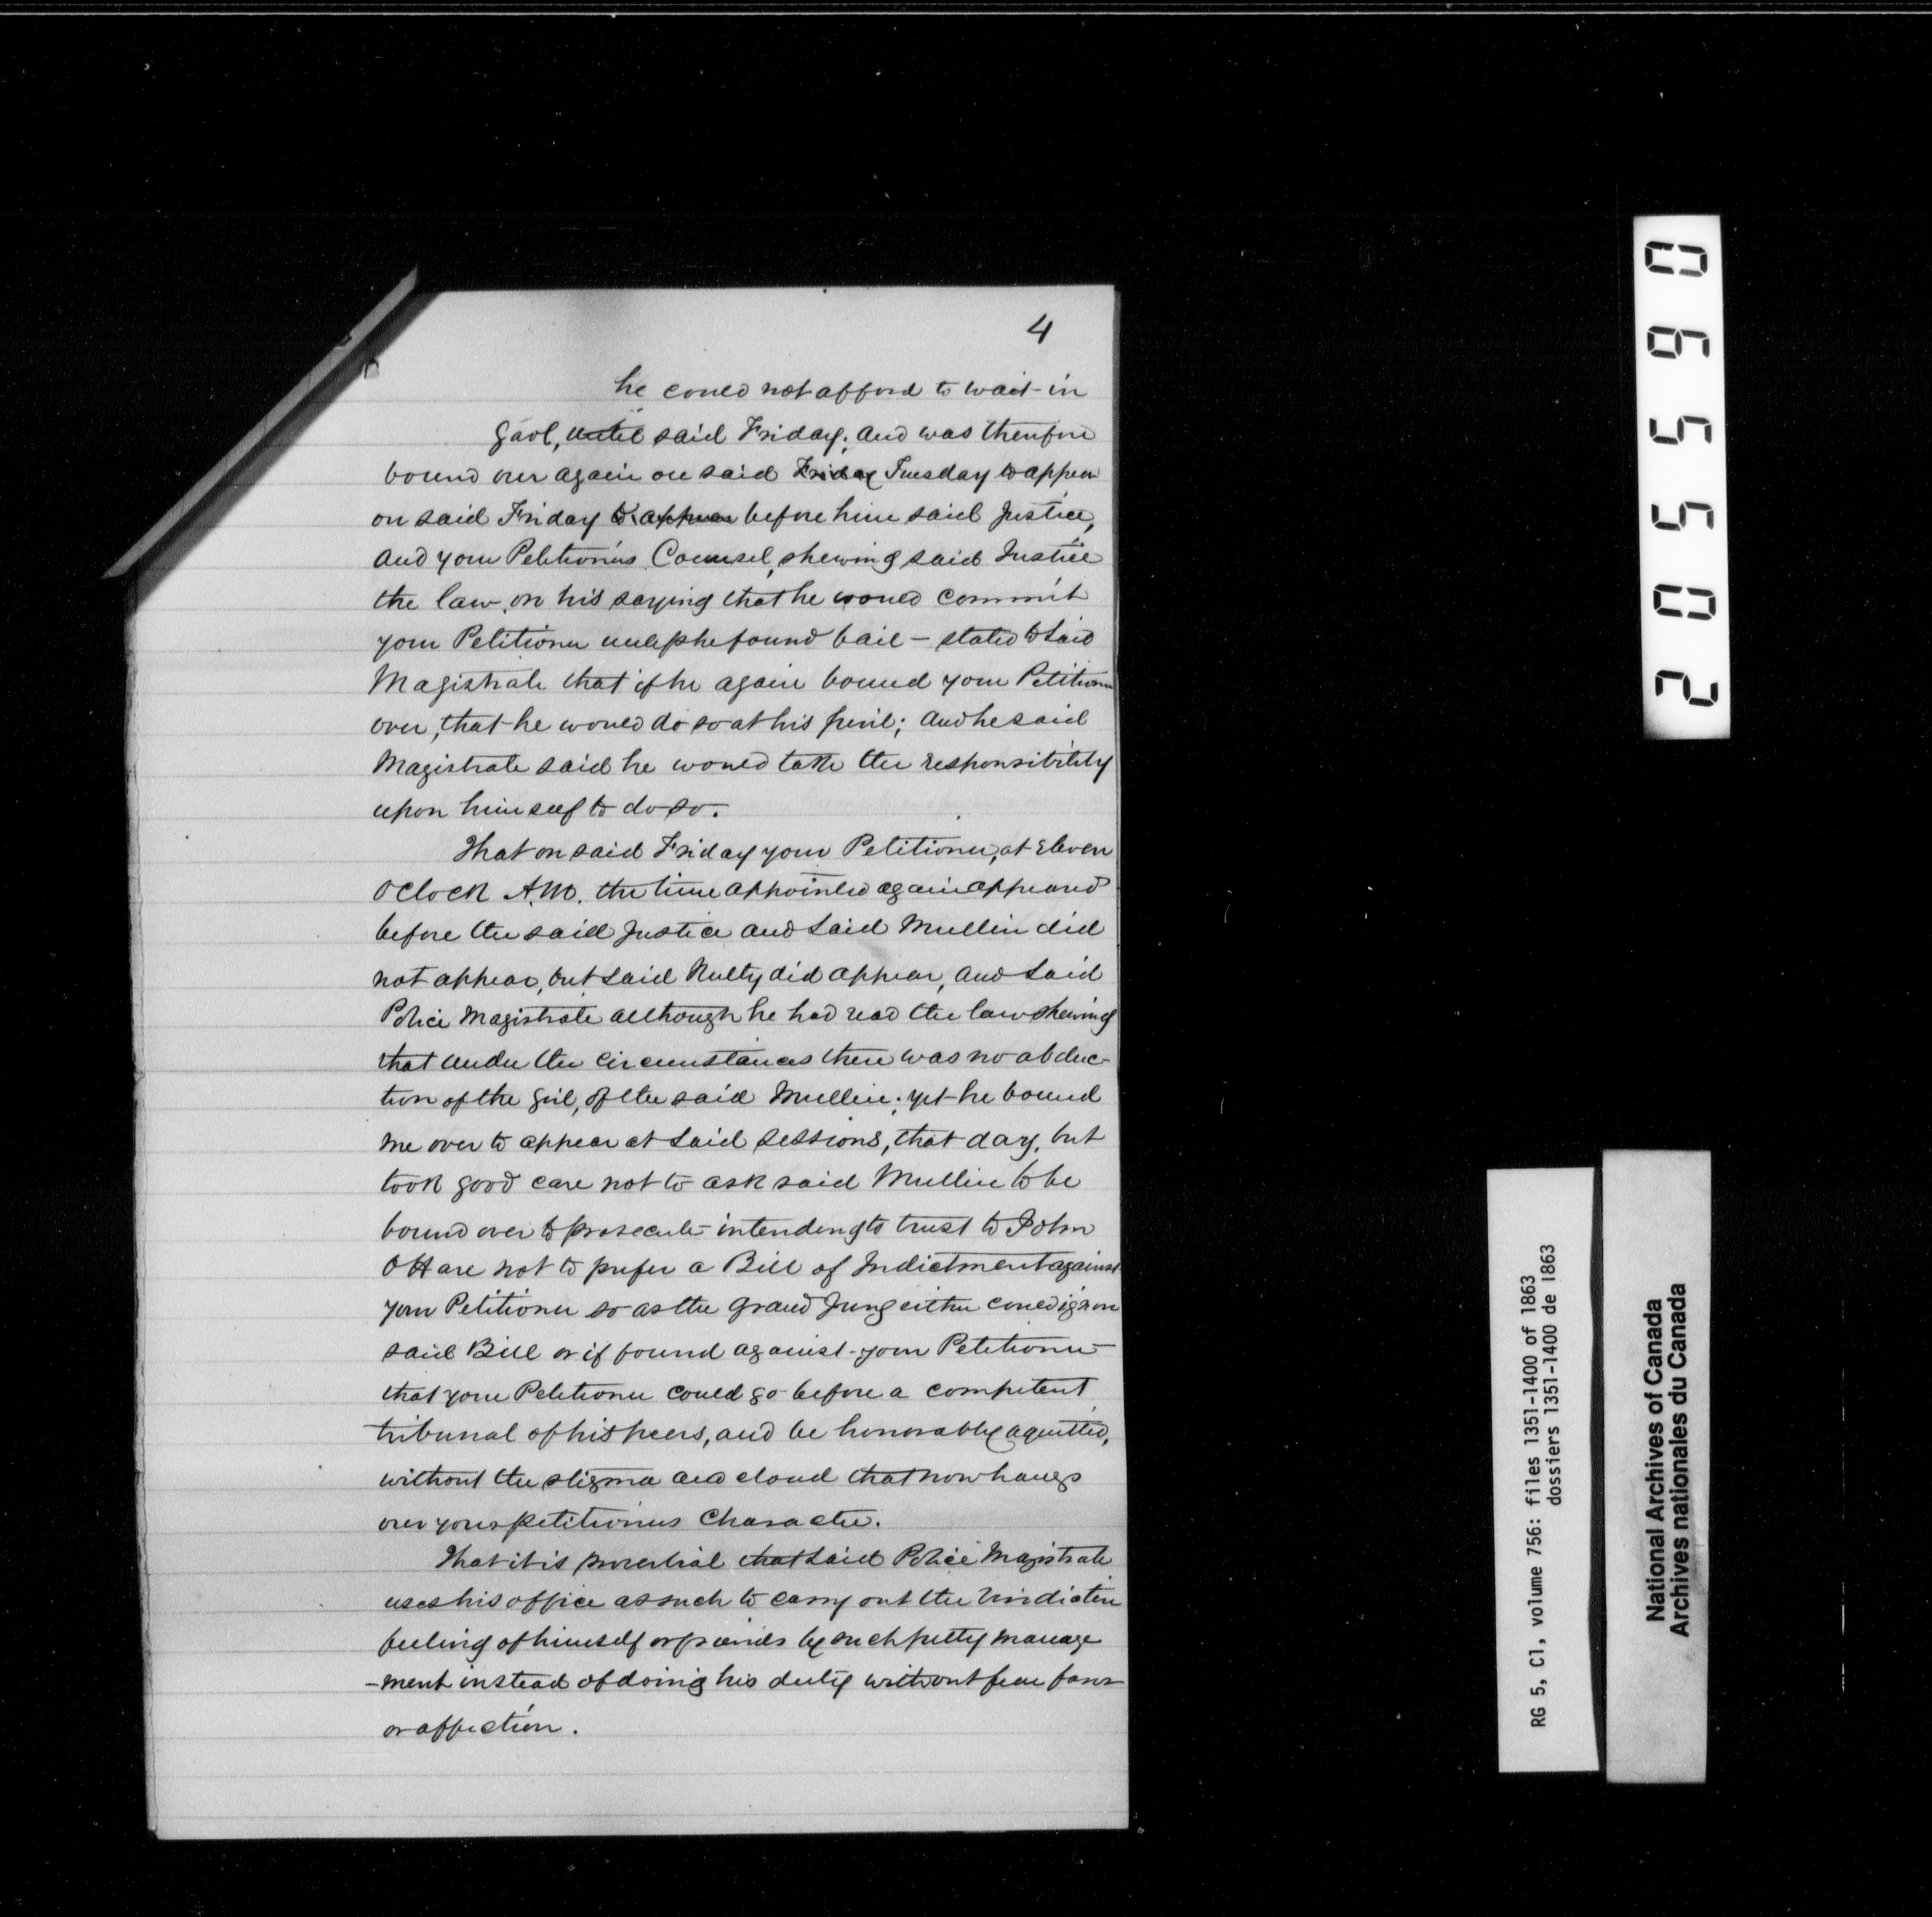 4
he could not afford to wait in
Gaol, until said Friday, and was therefore
bound over again on said Friday Tuesday to appear
on said Friday to appear before him said Justice,
and your Petitioner's Counsel, shewing said Justice
the law, on his saying that he would commit
your Petitioner unless he found bail — stated to said
Magistrate that if he again bound your Petitioner
over, that he would do so at his peril; and he said
Magistrate said he would take the responsibility
upon himself to do so.
That on said Friday your Petitioner, at Eleven
OClock A.M. the time appointed again appeared
before the said Justice and said Mullin did
not appear, but said Nulty did appear, and said
Police Magistrate although he had read the law shewing
that under the circumstances there was no abduc-
tion of the girl, of the said Mullin; yet he bound
me over to appear at said Sessions, that day, but
took good care not to ask said Mullin to be
bound over to prosecute intending to trust to John
OHare not to prefer a Bill of Indictment against
your Petitioner so as the Grand Jury either could ignore
said Bill or if found against your Petitioner
that your Petitioner could go before a competent
tribunal of his peers, and be honorably aquitted,
without the stigma and cloud that now hangs
over your petitioners Character.
That it is proverbial that said Police Magistrate
uses his office as such to carry out the vindictive
feeling of himself or friends by such petty manage
-ment instead of doing his duty without fear favor
or affection.
205590
RG 5, C1, volume 756: files 1351-1400 of 1863
dossiers 1351-1400 de 1863
National Archives of Canada
Archives nationales du Canada